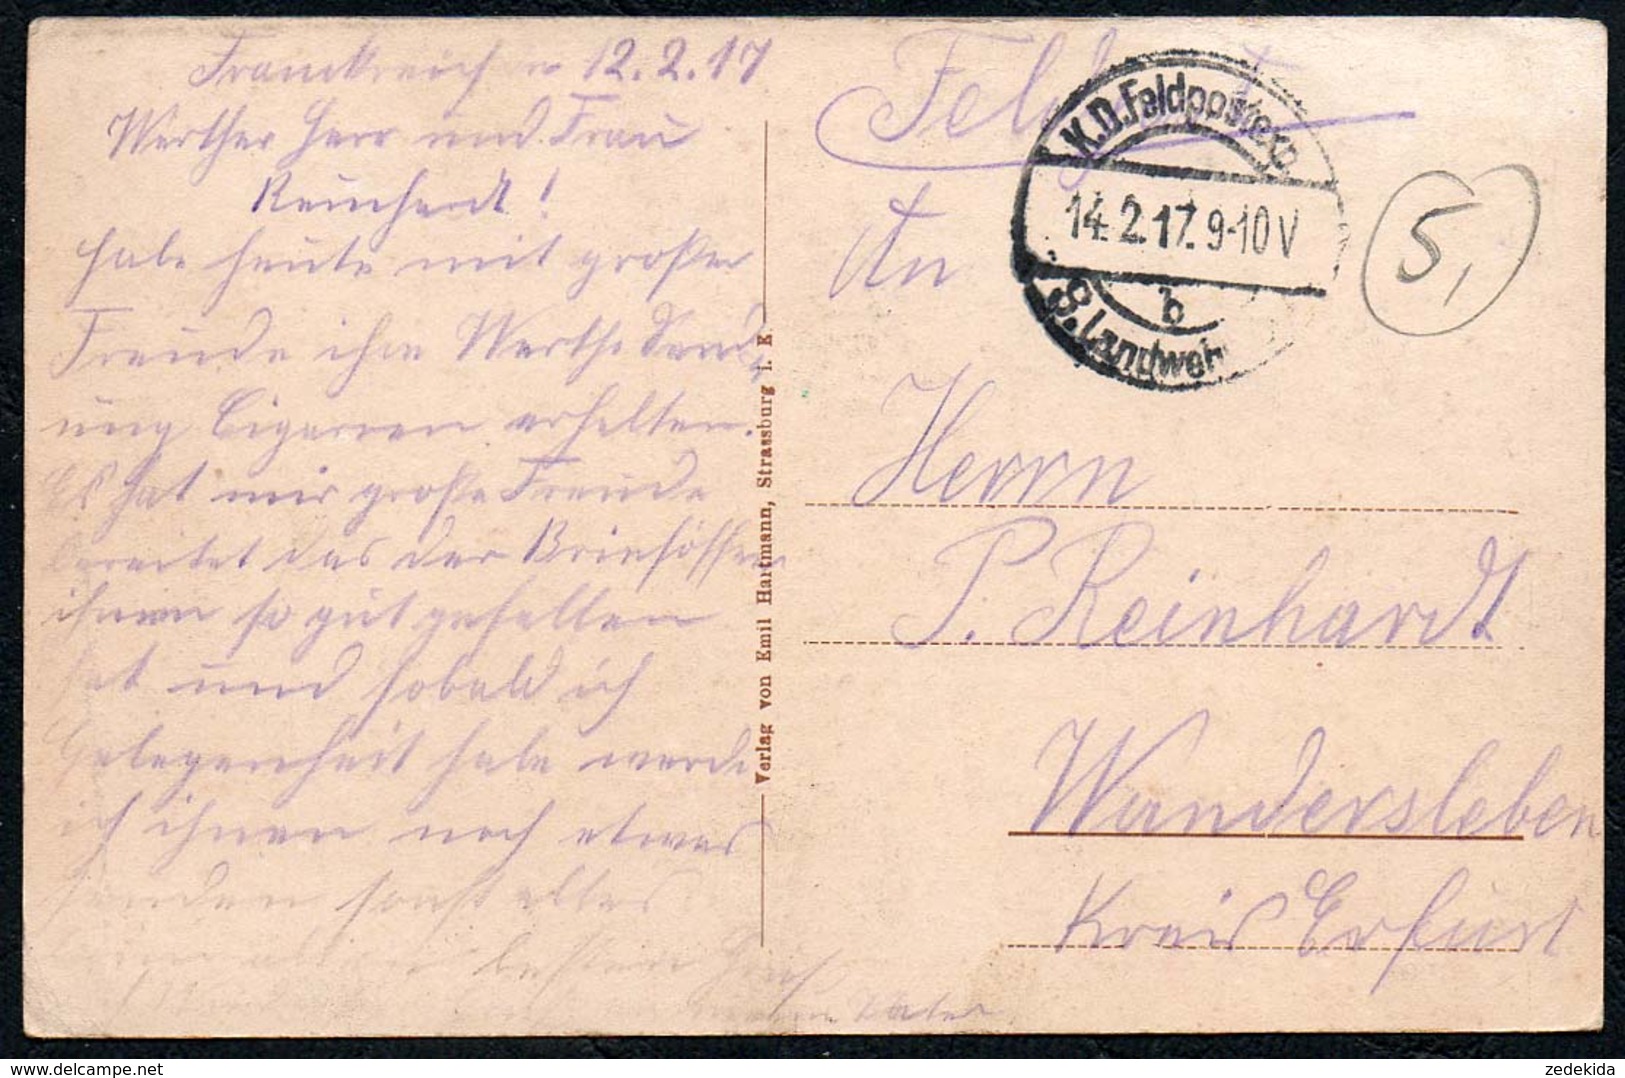 Franckreich 12.2.17
Werther Herr und Frau
Reincherdt!
habe heute mit großer
Freude ihre Werthe Send,
ung Cigarren erhalten.
Es hat mir große Freude
bereitet das der Brieföffner
ihnen so gut gefallen
hat und sobald ich
Gelegenheit habe werde
ich ihnen noch etwas
senden sonst alles
besten Gruß
Vater
Verlag von Emil Hartmann, Strassburg i. E.
Feldpost
K.D.Feldpostexp
14.2.17.9-10V
b
8.Landwehr
5,
An
Herrn
P. Reinhardt
Wandersleben
Kreis Erfurt
delcampe.net
zedekida